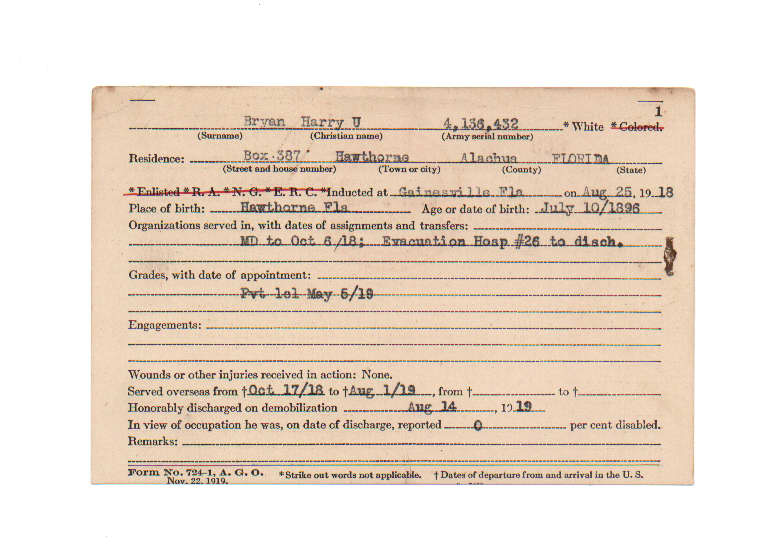 1
Bryan Harry U 4,136,432 *White *Colored.
(Surname) (Christian name) (Army serial number)
Residence: Box 387 Hawthorne Alachua FLORIDA
(Street and house number) (Town or city) (County) (State)
*Enlisted *R. A. *N. G. *E. R. C. *Inducted at Gainesville Fla on Aug 25, 1918
Place of birth: Hawthorne Fla Age or date of birth: July 10/1896
Organizations served in, with dates of assignments and transfers:
MD to Oct 6/18; Evacuation Hosp #26 to disch.
Grades, with date of appointment:
Pvt 1cl May 5/19
Engagements:
Wounds or other injuries received in action: None.
Served overseas from †Oct 17/18 to †Aug 1/19, from † to †
Honorably discharged on demobilization Aug 14, 1919
In view of occupation he was, on date of discharge, reported 0 per cent disabled.
Remarks:
Form No. 724-1, A. G. O. *Strike out words not applicable. † Dates of departure from and arrival in the U. S.
Nov. 22, 1919.